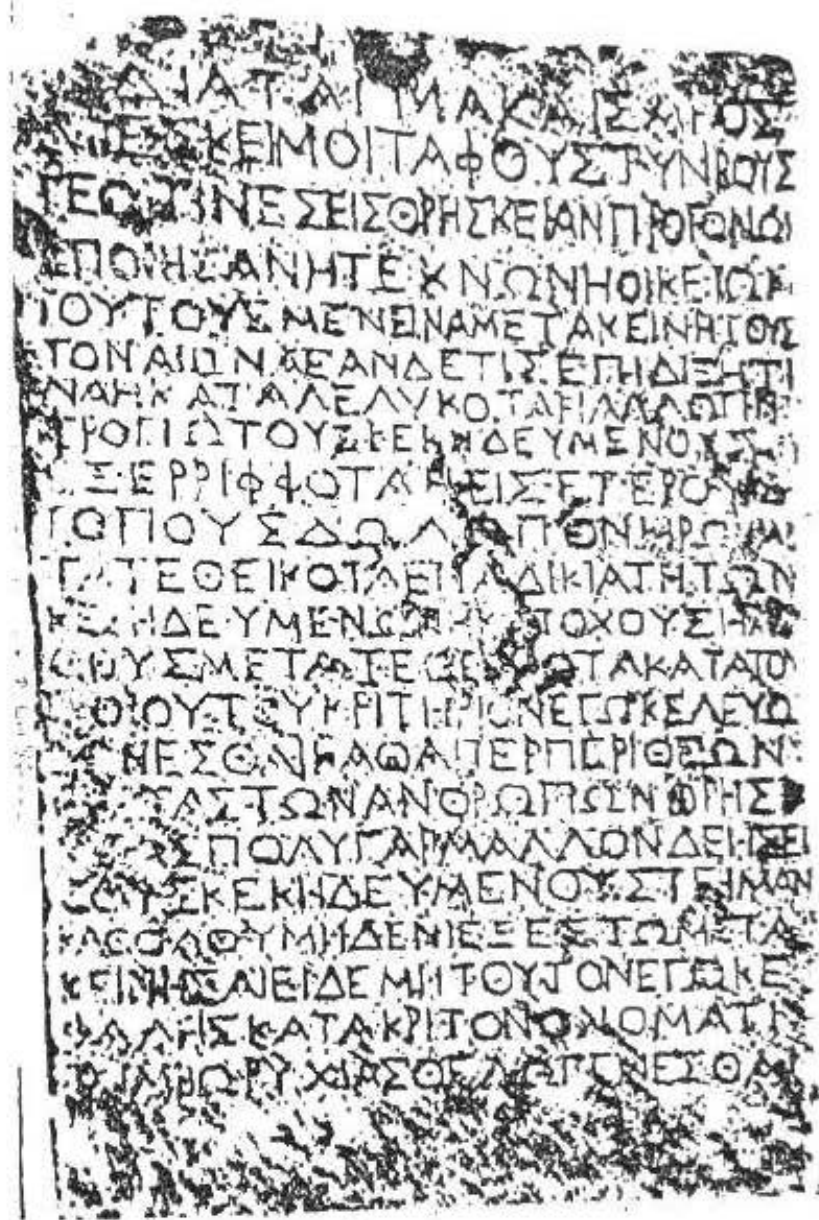 ΔΙΑΤΑΓΜΑΚΑΙΣΑΡΟΣ
ΑΡΕΣΚΕΙΜΟΙΤΑΦΟΥΣΤΥΝΒΟΥΣ
ΤΕΟΙΤΙΝΕΣΕΙΣΘΡΗΣΚΕΙΑΝΠΡΟΓΟΝΩΝ
ΕΠΟΙΗΣΑΝΗΤΕΚΝΩΝΗΟΙΚΕΙΩΝ
ΤΟΥΤΟΥΣΜΕΝΕΙΝΑΜΕΤΑΚΕΙΝΗΤΟΥΣ
ΤΟΝΑΙΩΝΑΕΑΝΔΕΤΙΣΕΠΙΔΙΞΗΤΙ
ΝΑΗΚΑΤΑΛΕΛΥΚΟΤΑΗΑΛΛΩΤΙΝΙ
ΤΡΟΠΩΤΟΥΣΚΕΚΗΔΕΥΜΕΝΟΥΣ
ΕΞΕΡΡΙΦΦΟΤΑΗΕΙΣΕΤΕΡΟΥΣ
ΤΟΠΟΥΣΔΩΛΩΠΟΝΗΡΩΜΕ
ΤΑΤΕΘΕΙΚΟΤΑΕΠΙΑΔΙΚΙΑΤΗΤΩΝ
ΚΕΚΗΔΕΥΜΕΝΩΝΗΚΑΤΟΧΟΥΣΗΛΙ
ΘΟΥΣΜΕΤΑΤΕΘΕΙΚΟΤΑΚΑΤΑΤΟΥ
ΤΟΙΟΥΤΟΥΚΡΙΤΗΡΙΟΝΕΓΩΚΕΛΕΥΩ
ΓΕΝΕΣΘΑΙΚΑΘΑΠΕΡΠΕΡΙΘΕΩΝ
ΕΙΣΤΑΣΤΩΝΑΝΘΡΩΠΩΝΘΡΗΣ
ΚΙΑΣΠΟΛΥΓΑΡΜΑΛΛΟΝΔΕΗΣΕΙ
ΤΟΥΣΚΕΚΗΔΕΥΜΕΝΟΥΣΤΕΙΜΑΝ
ΚΑΘΟΛΟΥΜΗΔΕΝΙΕΞΕΣΤΩΜΕΤΑ
ΚΕΙΝΗΣΑΙΕΙΔΕΜΗΤΟΥΤΟΝΕΓΩΚΕ
ΦΑΛΗΣΚΑΤΑΚΡΙΤΟΝΟΝΟΜΑΤΙ
ΤΥΜΒΩΡΥΧΙΑΣΘΕΛΩΓΕΝΕΣΘΑΙ